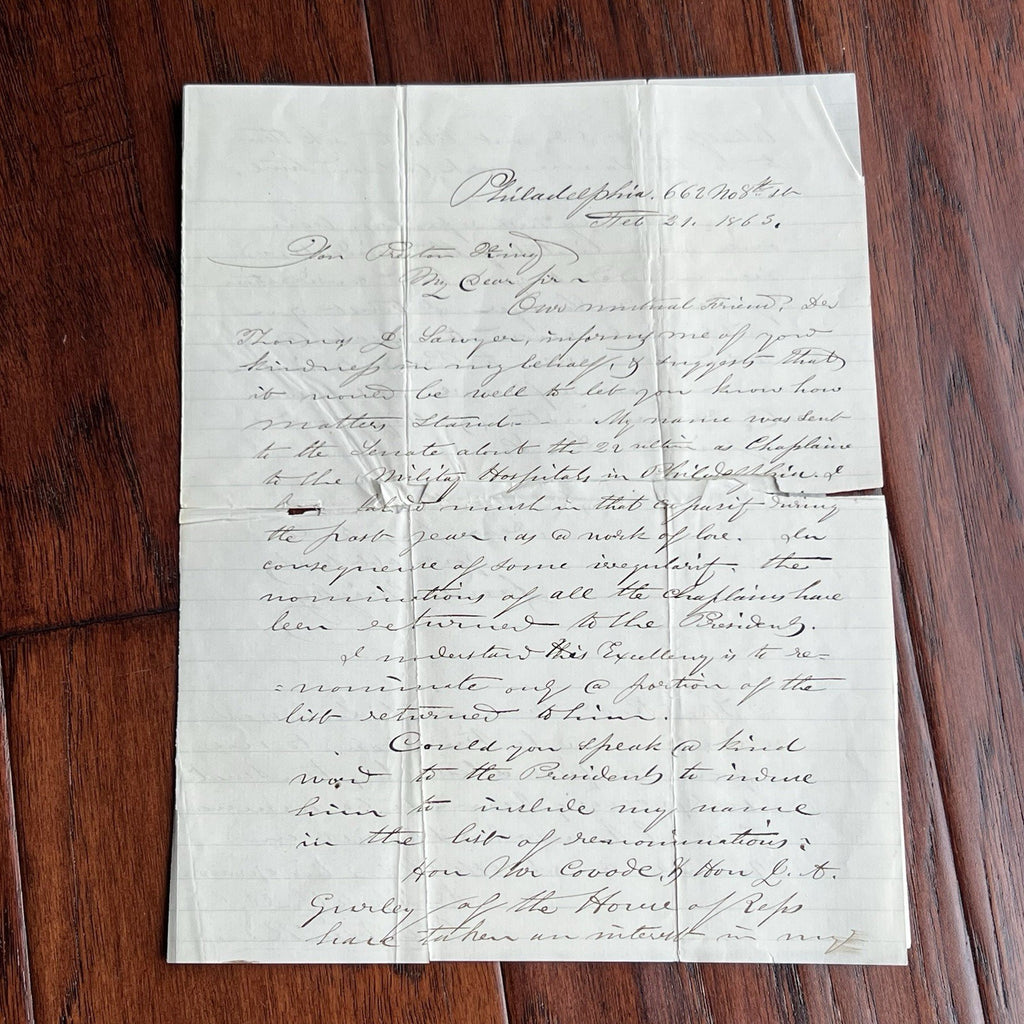 Philadelphia. 662 No 8th St
Feb 21. 1863.
Hon Preston King
My Dear Sir –
Our mutual Friend, Dr
Thomas J. Sawyer, informs me of your
kindness in my behalf, & suggests that
it would be well to let you know how
matters stand – My name was sent
to the Senate about the 22 ultim as Chaplain
to the Military Hospitals in Philadelphia. I
labored much in that capacity during
the past year, as a work of love. In
consequence of some irregularity the
nominations of all the Chaplains have
been returned to the President.
I understand His Excellency is to re=
=nominate only a portion of the
list returned to him.
Could you speak a kind
word to the President to induce
him to include my name
in the list of renominations:
Hon Mr Covode, & Hon J. A.
Gurley of the House of Reps
have taken an interest in my